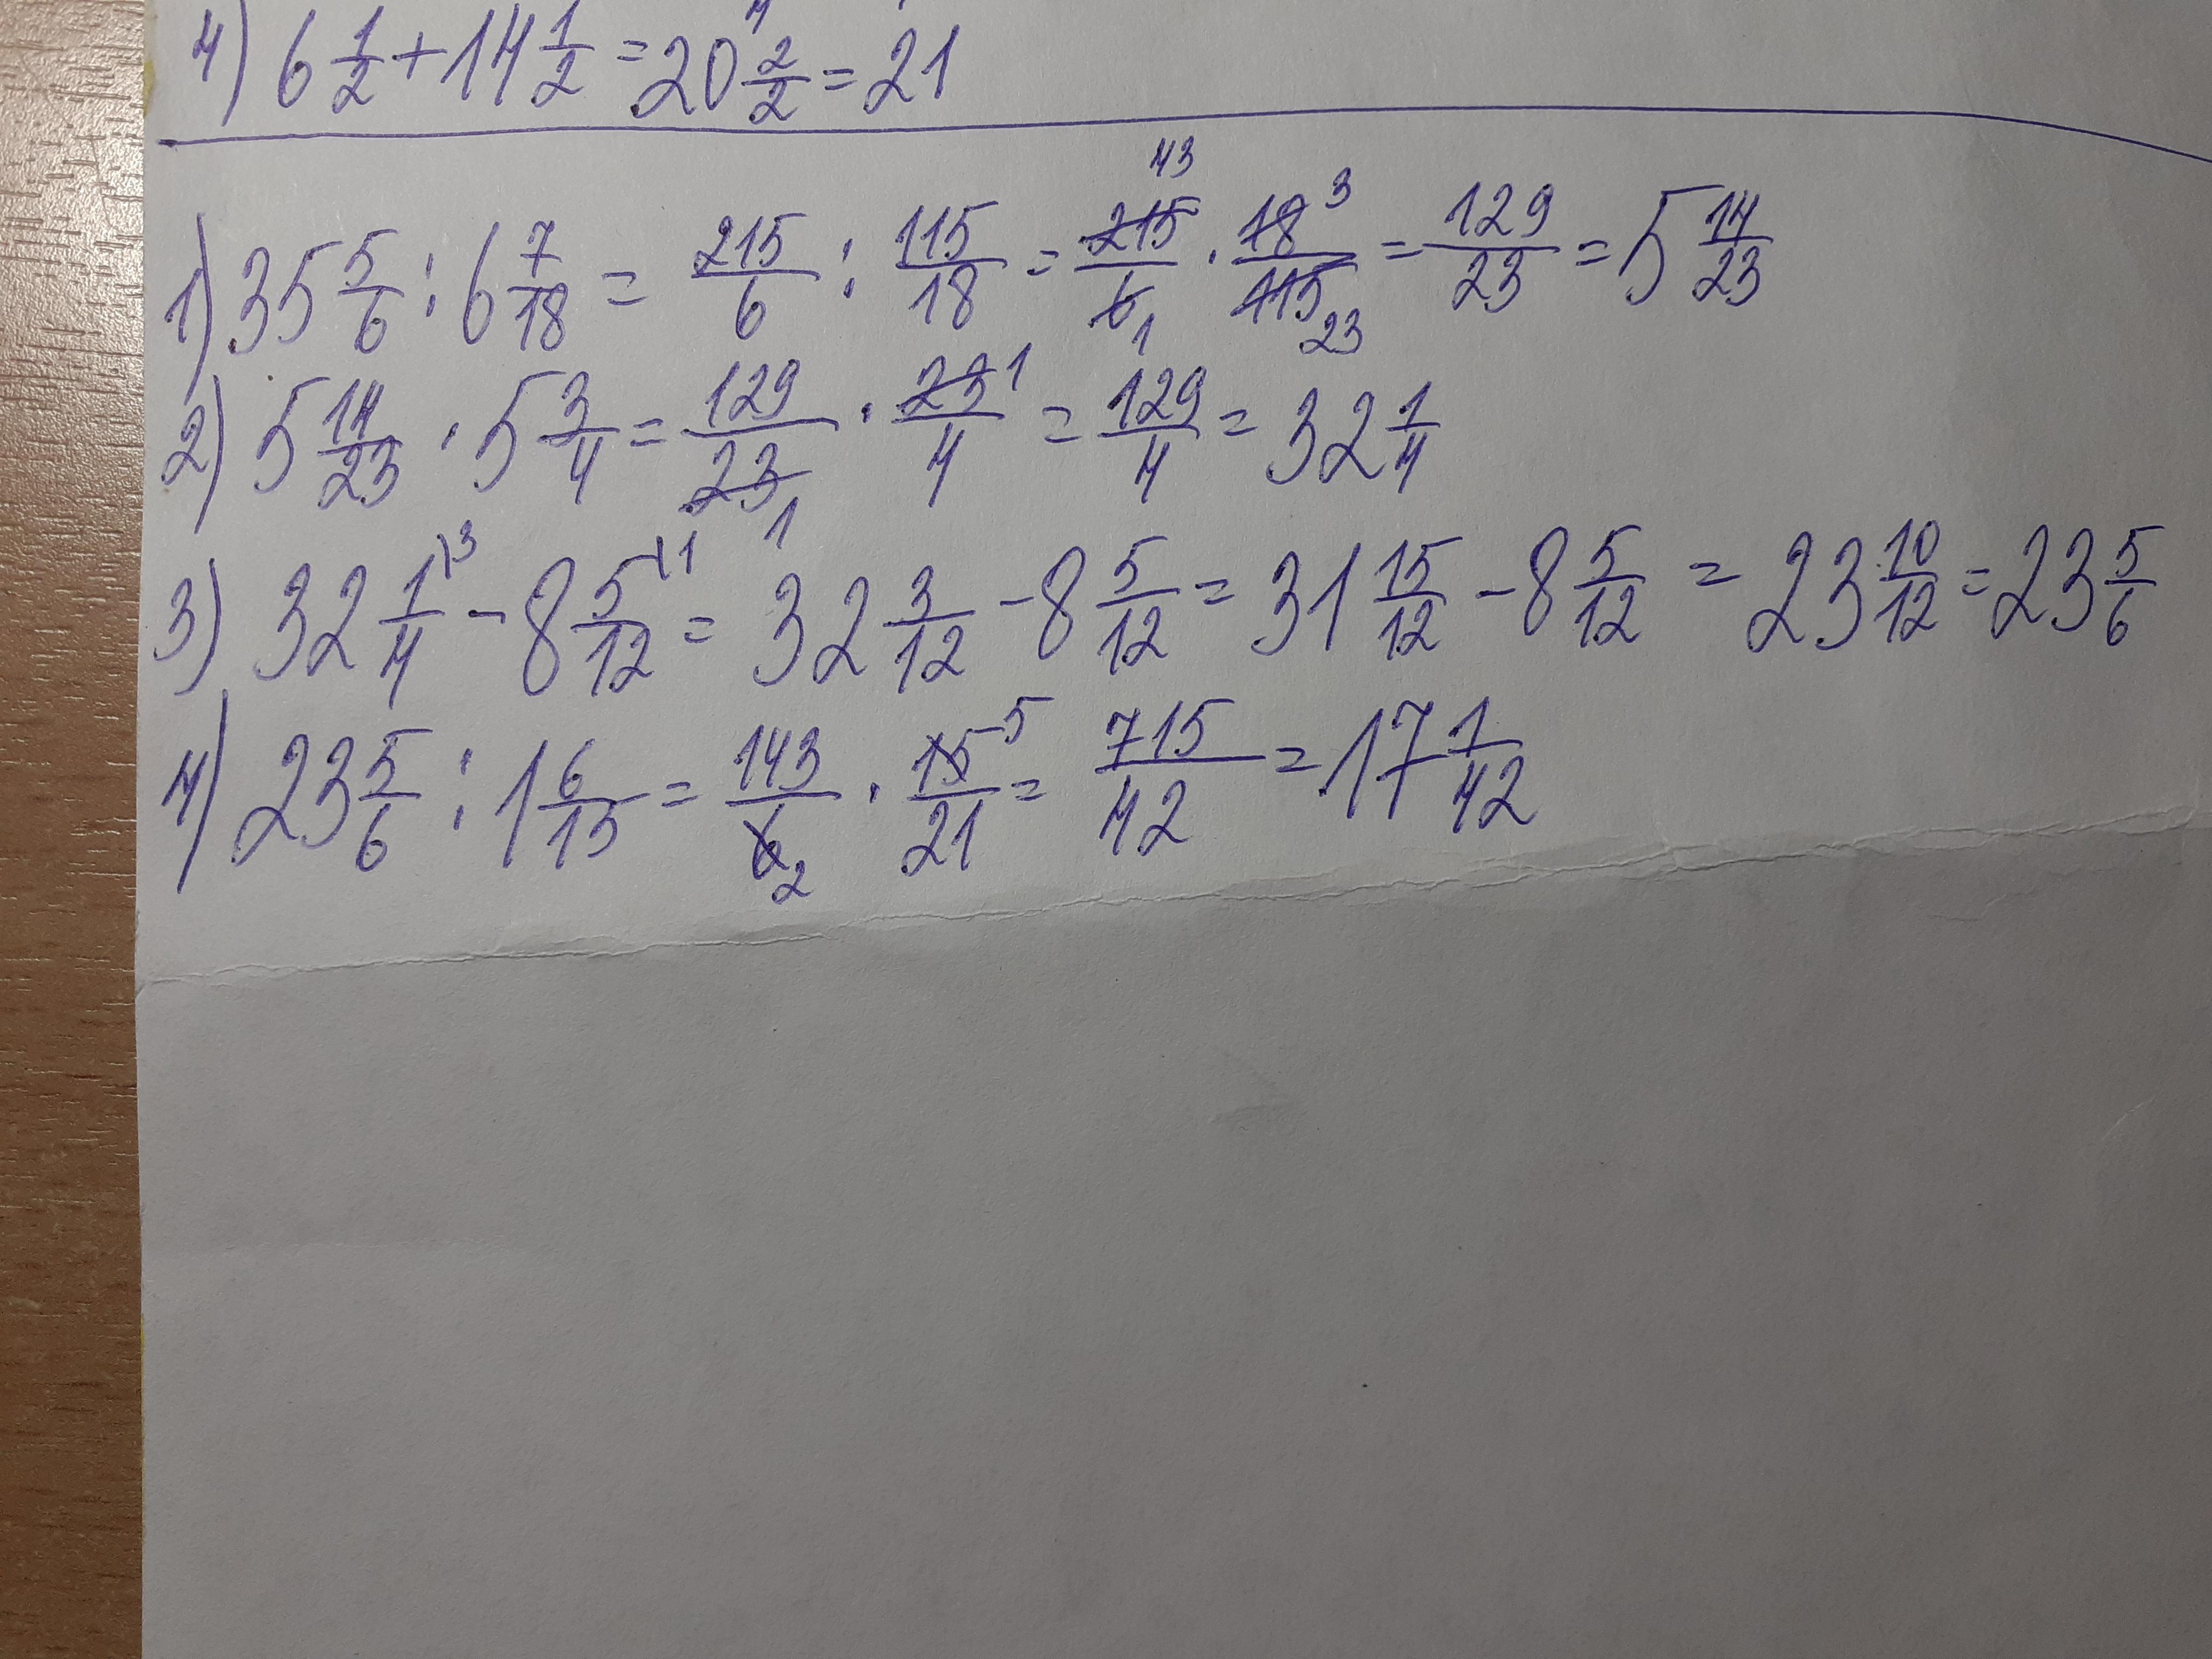 4) 6 1/2 + 14 1/2 = 20 2/2 = 21
1) 35 5/6 : 6 7/18 = 215/6 : 115/18 = 215/6 · 18/115 = 129/23 = 5 14/23
2) 5 14/23 · 5 3/4 = 129/23 · 23/4 = 129/4 = 32 1/4
3) 32 1/4 - 8 5/12 = 32 3/12 - 8 5/12 = 31 15/12 - 8 5/12 = 23 10/12 = 23 5/6
4) 23 5/6 : 1 6/15 = 143/6 · 15/21 = 715/42 = 17 1/42